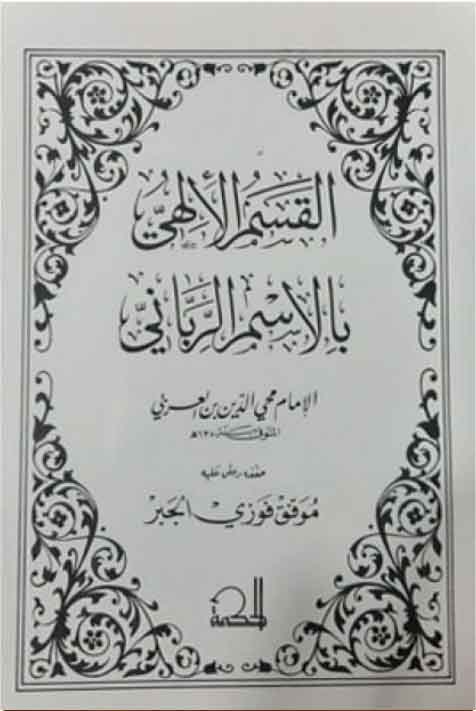 القَسَمُ الإلهِيُّ
بِالاسْمِ الرَّبَّانِيِّ
الإمام محيي الدين بن العربي
المتوفى سنة ٦٣٨هـ
حققه وعلق عليه
مُوَفَّق فَوْزِي الجَبْر
الحكمة